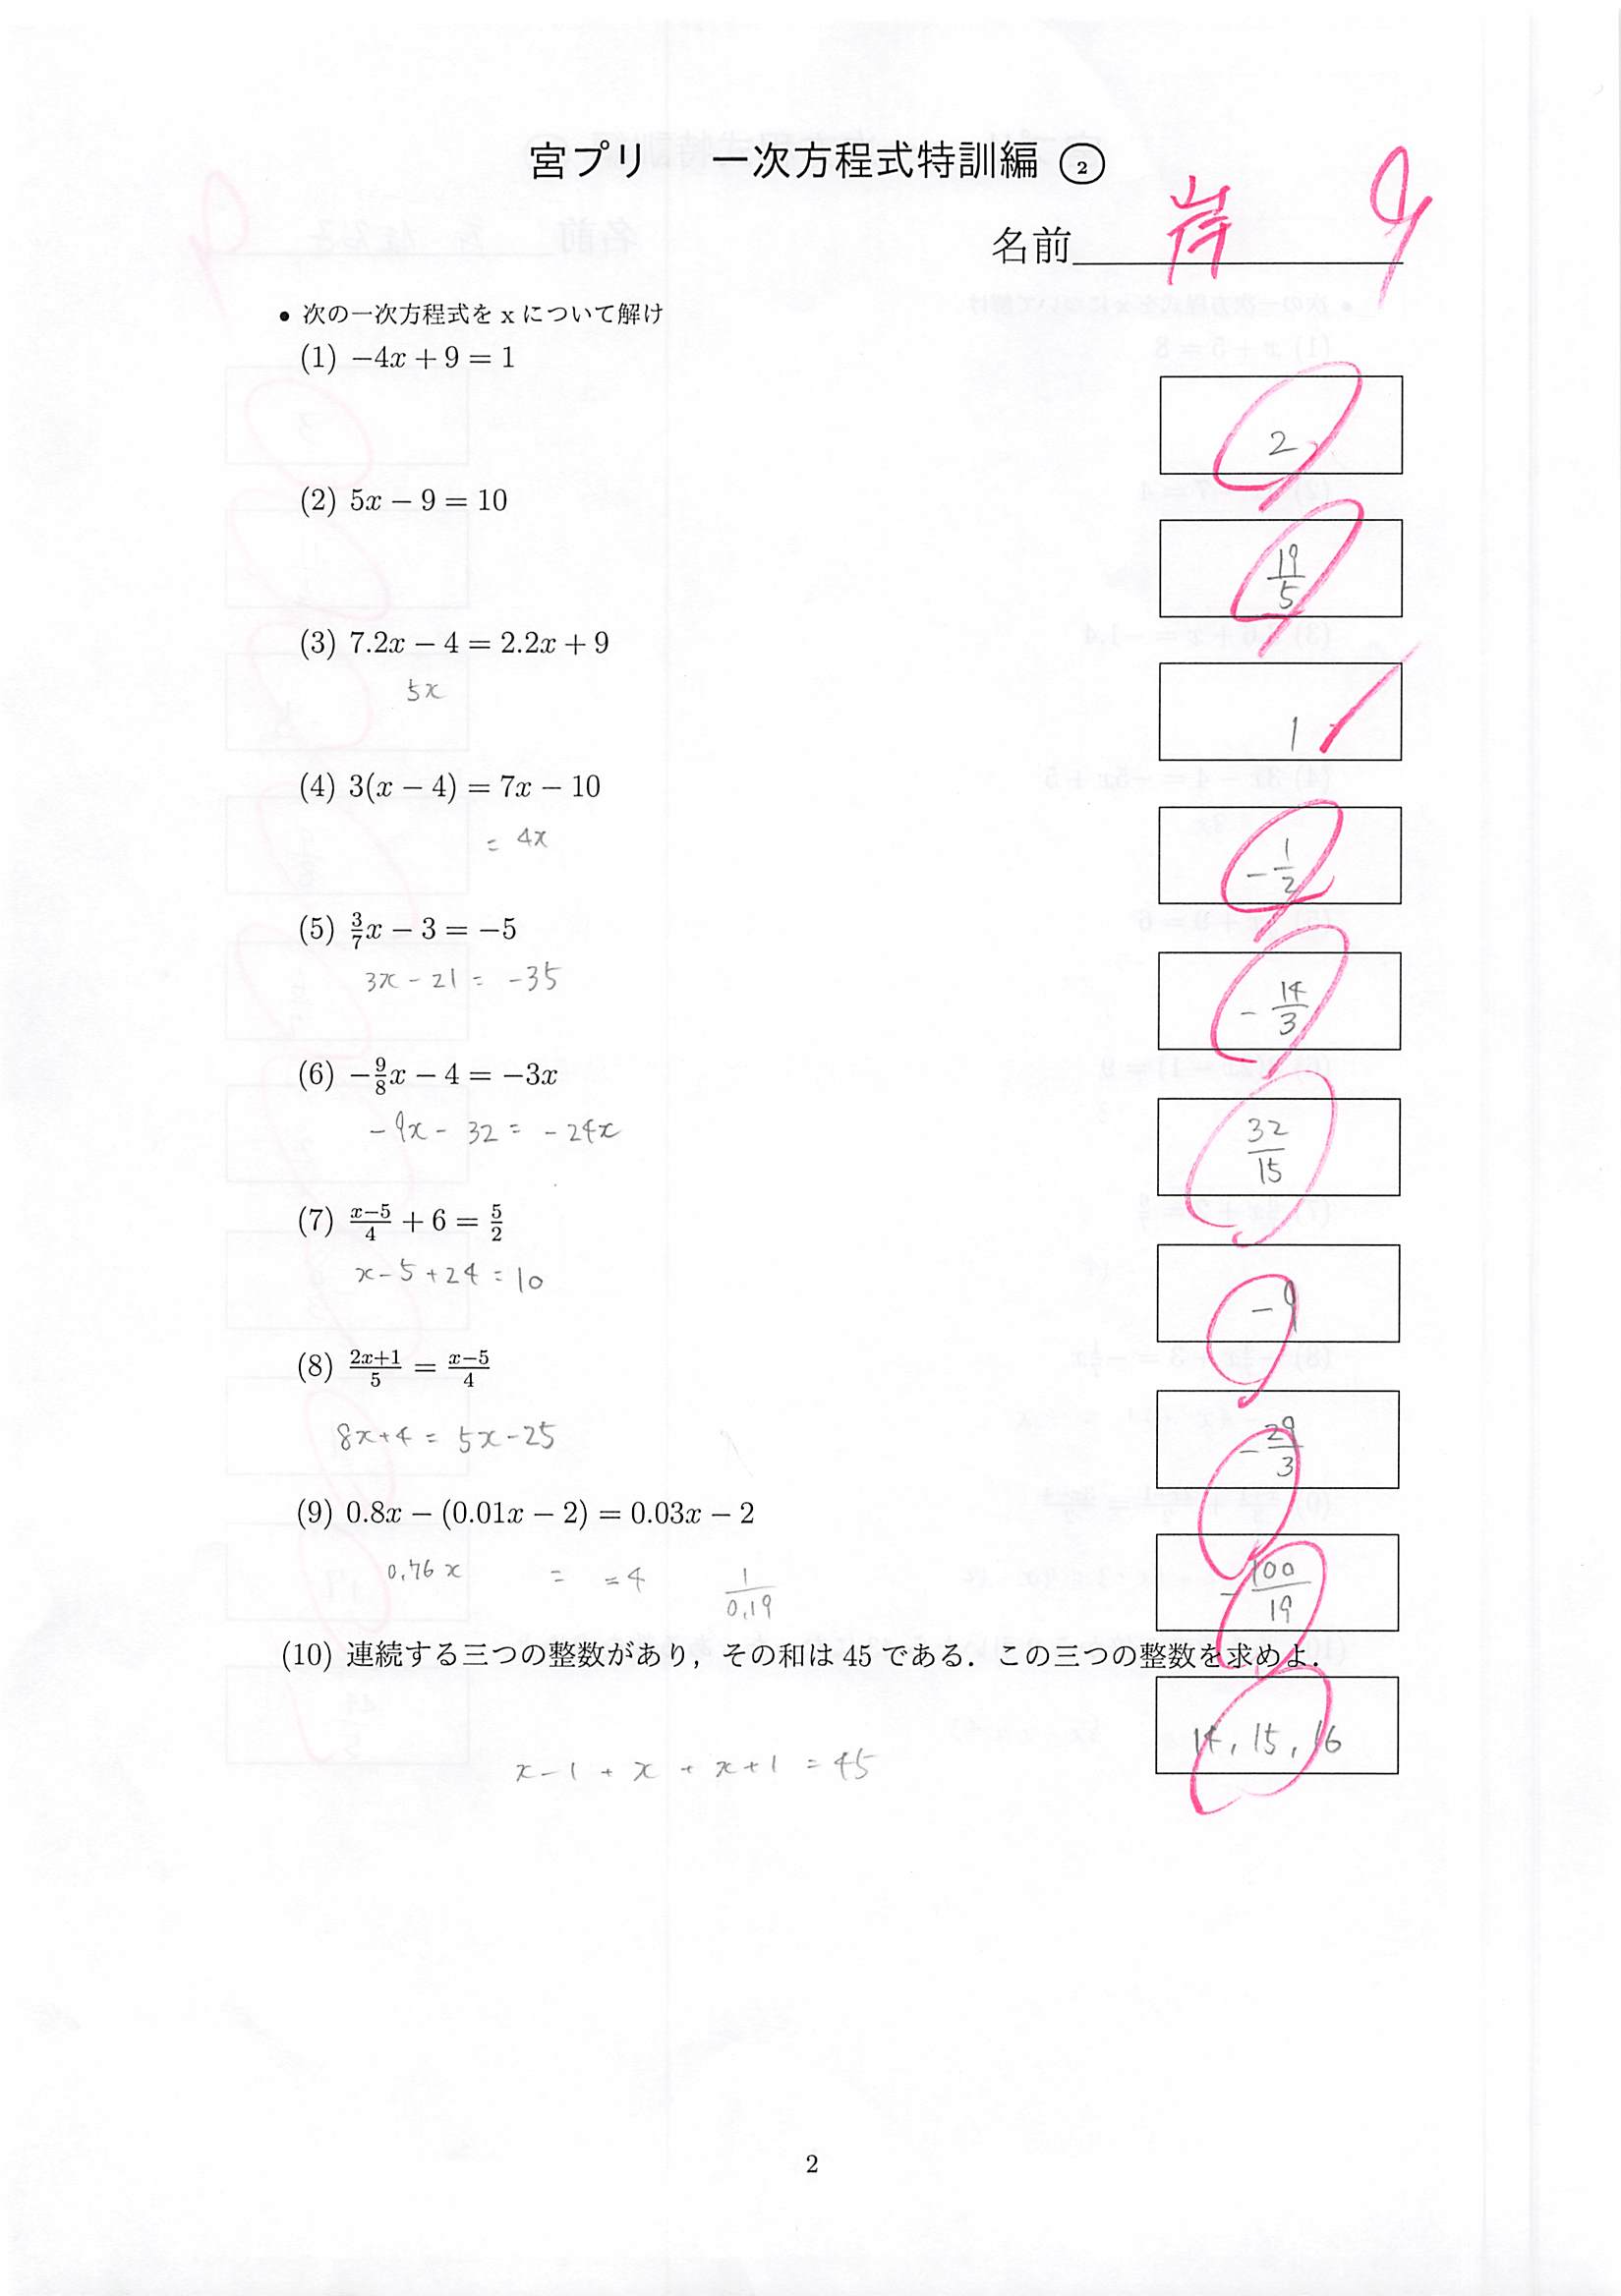 宮プリ 一次方程式特訓編 ②
名前 岸 9
• 次の一次方程式を x について解け
(1) −4x + 9 = 1
2
(2) 5x − 9 = 10
19/5
(3) 7.2x − 4 = 2.2x + 9
5x
1
(4) 3(x − 4) = 7x − 10
= 4x
−1/2
(5) 3/7 x − 3 = −5
3x − 21 = −35
−14/3
(6) −9/8 x − 4 = −3x
−9x − 32 = −24x
32/15
(7) (x−5)/4 + 6 = 5/2
x − 5 + 24 = 10
−9
(8) (2x+1)/5 = (x−5)/4
8x+4 = 5x−25
−29/3
(9) 0.8x − (0.01x − 2) = 0.03x − 2
0,76x = −4 1/0,19
−100/19
(10) 連続する三つの整数があり，その和は 45 である．この三つの整数を求めよ．
14, 15, 16
x−1 + x + x+1 = 45
2